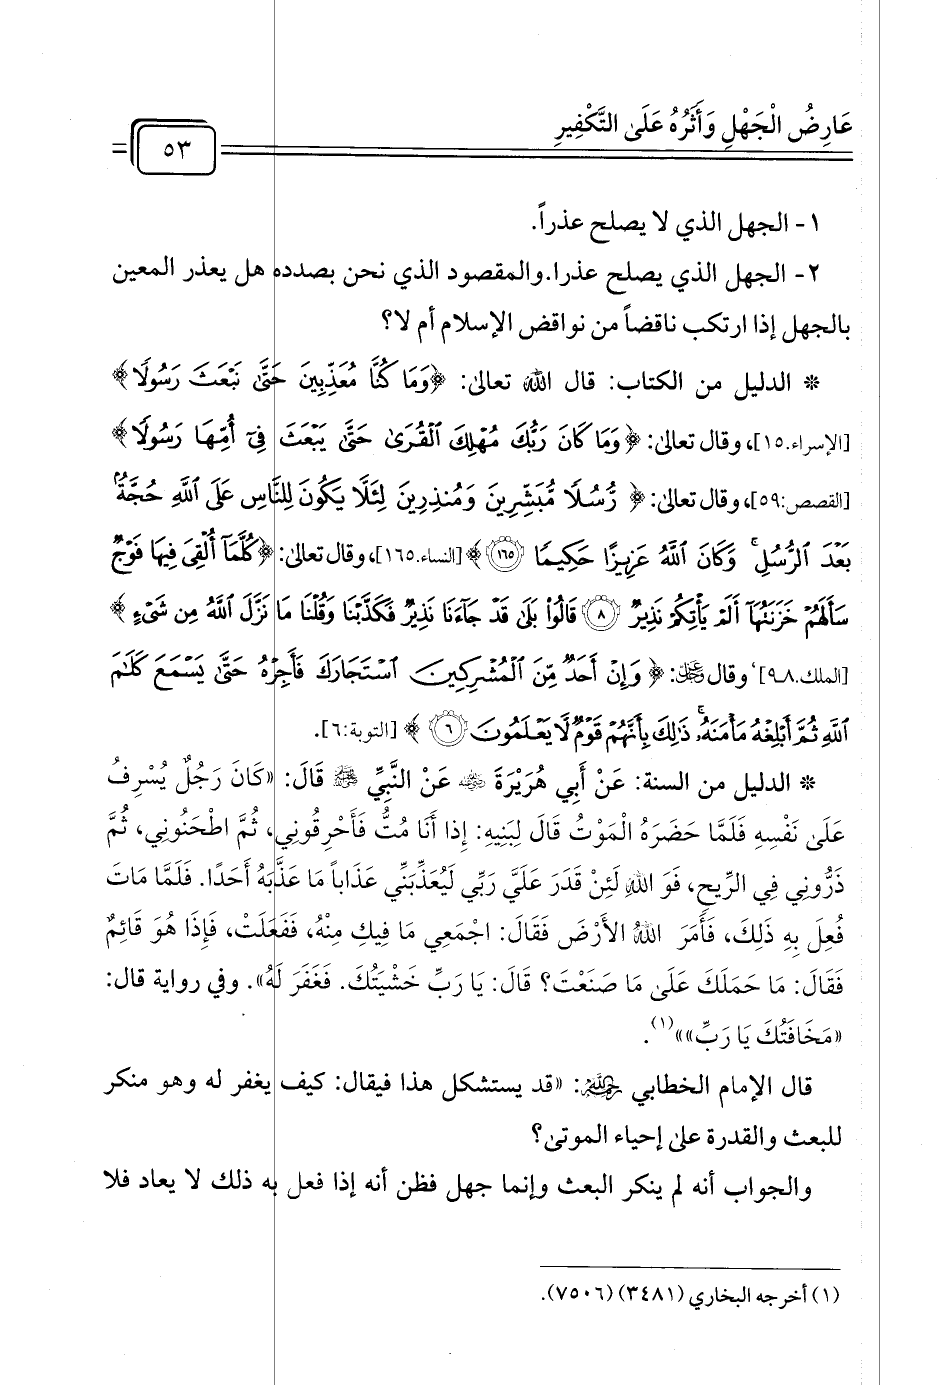 عَارِضُ الْجَهْلِ وَأَثَرُهُ عَلَى التَّكْفِيرِ
٥٣
١- الجهل الذي لا يصلح عذراً.
٢- الجهل الذي يصلح عذرا.والمقصود الذي نحن بصدده هل يعذر المعين
بالجهل إذا ارتكب ناقضاً من نواقض الإسلام أم لا؟
* الدليل من الكتاب: قال الله تعالى: ﴿وَمَا كُنَّا مُعَذِّبِينَ حَتَّىٰ نَبْعَثَ رَسُولًا﴾
[الإسراء.١٥]، وقال تعالى: ﴿وَمَا كَانَ رَبُّكَ مُهْلِكَ ٱلْقُرَىٰ حَتَّىٰ يَبْعَثَ فِىٓ أُمِّهَا رَسُولًا﴾
[القصص:٥٩]، وقال تعالى: ﴿رُّسُلًا مُّبَشِّرِينَ وَمُنذِرِينَ لِئَلَّا يَكُونَ لِلنَّاسِ عَلَى ٱللَّهِ حُجَّةٌۢ
بَعْدَ ٱلرُّسُلِ ۚ وَكَانَ ٱللَّهُ عَزِيزًا حَكِيمًا ١٦٥﴾ [النساء.١٦٥]، وقال تعالى: ﴿كُلَّمَآ أُلْقِىَ فِيهَا فَوْجٌ
سَأَلَهُمْ خَزَنَتُهَآ أَلَمْ يَأْتِكُمْ نَذِيرٌ ٨ قَالُوا۟ بَلَىٰ قَدْ جَآءَنَا نَذِيرٌ فَكَذَّبْنَا وَقُلْنَا مَا نَزَّلَ ٱللَّهُ مِن شَىْءٍ﴾
[الملك.٨ـ٩]، وقال ﷻ: ﴿وَإِنْ أَحَدٌ مِّنَ ٱلْمُشْرِكِينَ ٱسْتَجَارَكَ فَأَجِرْهُ حَتَّىٰ يَسْمَعَ كَلَٰمَ
ٱللَّهِ ثُمَّ أَبْلِغْهُ مَأْمَنَهُۥ ۚ ذَٰلِكَ بِأَنَّهُمْ قَوْمٌ لَّا يَعْلَمُونَ ٦﴾ [التوبة:٦].
* الدليل من السنة: عَنْ أَبِي هُرَيْرَةَ رضي الله عنه عَنْ النَّبِيِّ ﷺ قَالَ: «كَانَ رَجُلٌ يُسْرِفُ
عَلَىٰ نَفْسِهِ فَلَمَّا حَضَرَهُ الْمَوْتُ قَالَ لِبَنِيهِ: إِذَا أَنَا مُتُّ فَأَحْرِقُونِي، ثُمَّ اطْحَنُونِي، ثُمَّ
ذَرُّونِي فِي الرِّيحِ، فَوَ اللهِ لَئِنْ قَدَرَ عَلَيَّ رَبِّي لَيُعَذِّبَنِّي عَذَاباً مَا عَذَّبَهُ أَحَدًا. فَلَمَّا مَاتَ
فُعِلَ بِهِ ذَلِكَ، فَأَمَرَ اللهُ الأَرْضَ فَقَالَ: اجْمَعِي مَا فِيكِ مِنْهُ، فَفَعَلَتْ، فَإِذَا هُوَ قَائِمٌ
فَقَالَ: مَا حَمَلَكَ عَلَىٰ مَا صَنَعْتَ؟ قَالَ: يَا رَبِّ خَشْيَتُكَ. فَغَفَرَ لَهُ». وفي رواية قال:
«مَخَافَتُكَ يَا رَبِّ»»(١).
قال الإمام الخطابي رحمه الله: «قد يستشكل هذا فيقال: كيف يغفر له وهو منكر
للبعث والقدرة على إحياء الموتى؟
والجواب أنه لم ينكر البعث وإنما جهل فظن أنه إذا فعل به ذلك لا يعاد فلا
(١) أخرجه البخاري (٣٤٨١) (٧٥٠٦).